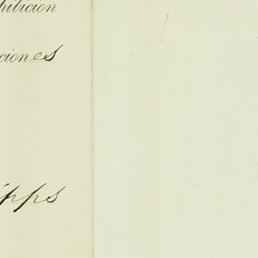 hibicion
ciones
ipps